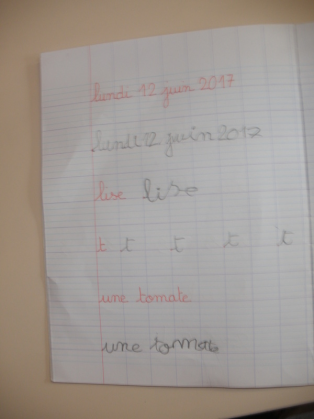 lundi 12 juin 2017
lundi 12 juin 2017
lise lise
t t t t t
une tomate
une tomate